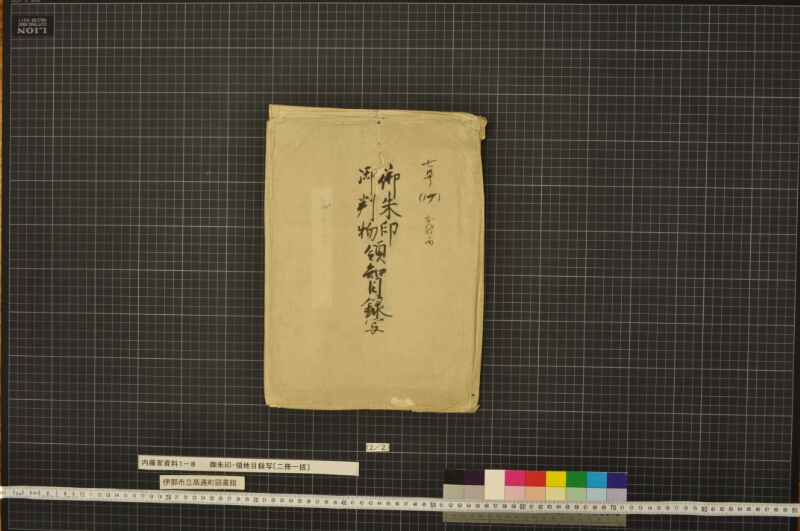 七号
御朱印
御判物領知目録写
2/2
内藤家資料1-8 御朱印・領地目録写〔二冊一括〕
伊那市立高遠町図書館
LION